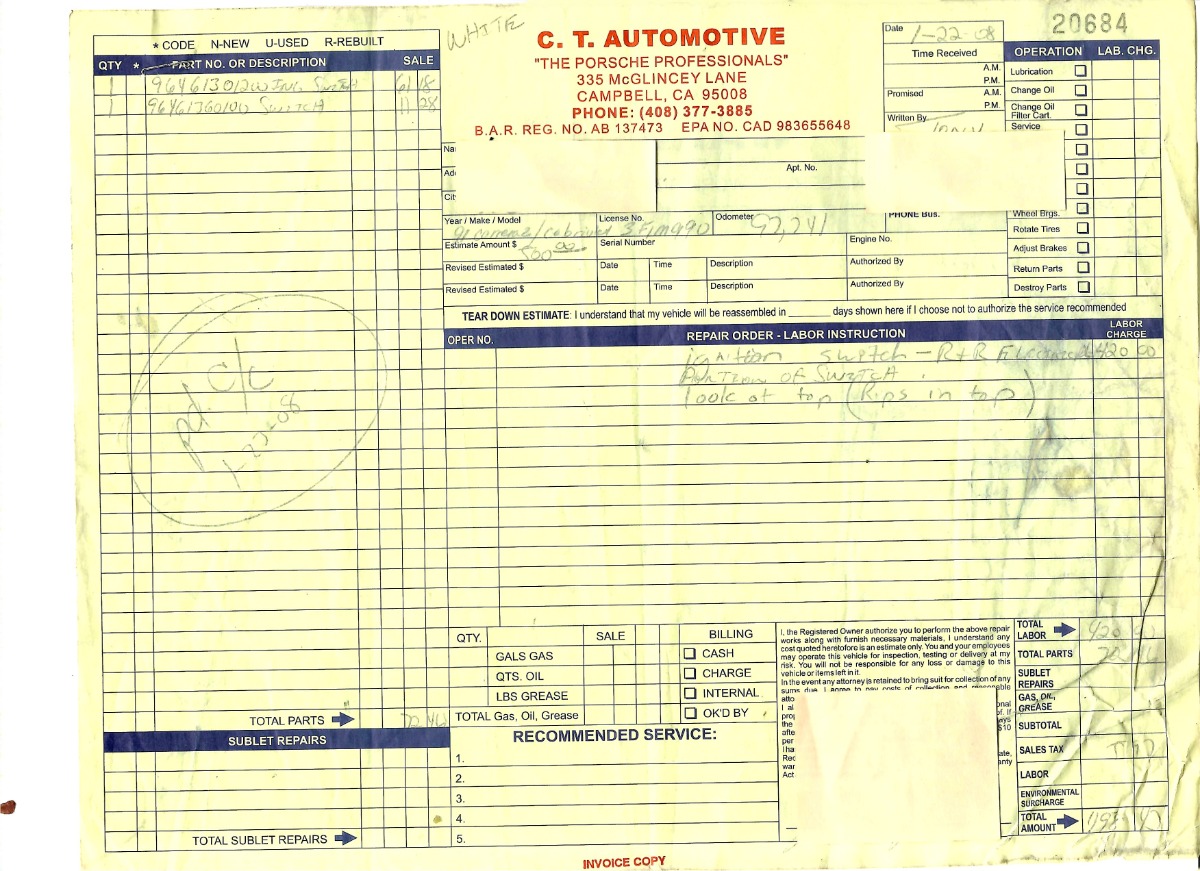 WHITE
20684
* CODE N-NEW U-USED R-REBUILT
QTY * PART NO. OR DESCRIPTION SALE
1 SWITCH 61 18
1 SWITCH 11 28
C. T. AUTOMOTIVE
"THE PORSCHE PROFESSIONALS"
335 McGLINCEY LANE
CAMPBELL, CA 95008
PHONE: (408) 377-3885
B.A.R. REG. NO. AB 137473 EPA NO. CAD 983655648
Date 1-22-08
Time Received
A.M.
P.M.
Promised A.M.
P.M.
Written By
OPERATION LAB. CHG.
Lubrication
Change Oil
Change Oil
Filter Cart.
Service
Wheel Brgs.
Rotate Tires
Adjust Brakes
Return Parts
Destroy Parts
Apt. No.
PHONE BUS.
Year / Make / Model License No. Odometer
92,241
Estimate Amount $ 500 Serial Number Engine No.
Revised Estimated $ Date Time Description Authorized By
Revised Estimated $ Date Time Description Authorized By
TEAR DOWN ESTIMATE: I understand that my vehicle will be reassembled in ________ days shown here if I choose not to authorize the service recommended
OPER NO. REPAIR ORDER - LABOR INSTRUCTION LABOR CHARGE
ignition switch - R+R Electrical 420 00
PORTION OF SWITCH.
look at top (Rips in top)
pd c/c
1-23-08
QTY. SALE BILLING
GALS GAS CASH
QTS. OIL CHARGE
LBS GREASE INTERNAL
TOTAL Gas, Oil, Grease OK'D BY
TOTAL PARTS 72 46
SUBLET REPAIRS
TOTAL SUBLET REPAIRS
RECOMMENDED SERVICE:
1.
2.
3.
4.
5.
I, the Registered Owner authorize you to perform the above repair
works along with furnish necessary materials, I understand any
cost quoted heretofore is an estimate only. You and your employees
may operate this vehicle for inspection, testing or delivery at my
risk. You will not be responsible for any loss or damage to this
vehicle or items left in it.
In the event any attorney is retained to bring suit for collection of any
sums due, I agree to pay costs of collection and reasonable
TOTAL LABOR 420
TOTAL PARTS 72
SUBLET REPAIRS
GAS, OIL, GREASE
SUBTOTAL
SALES TAX
LABOR
ENVIRONMENTAL SURCHARGE
TOTAL AMOUNT
INVOICE COPY